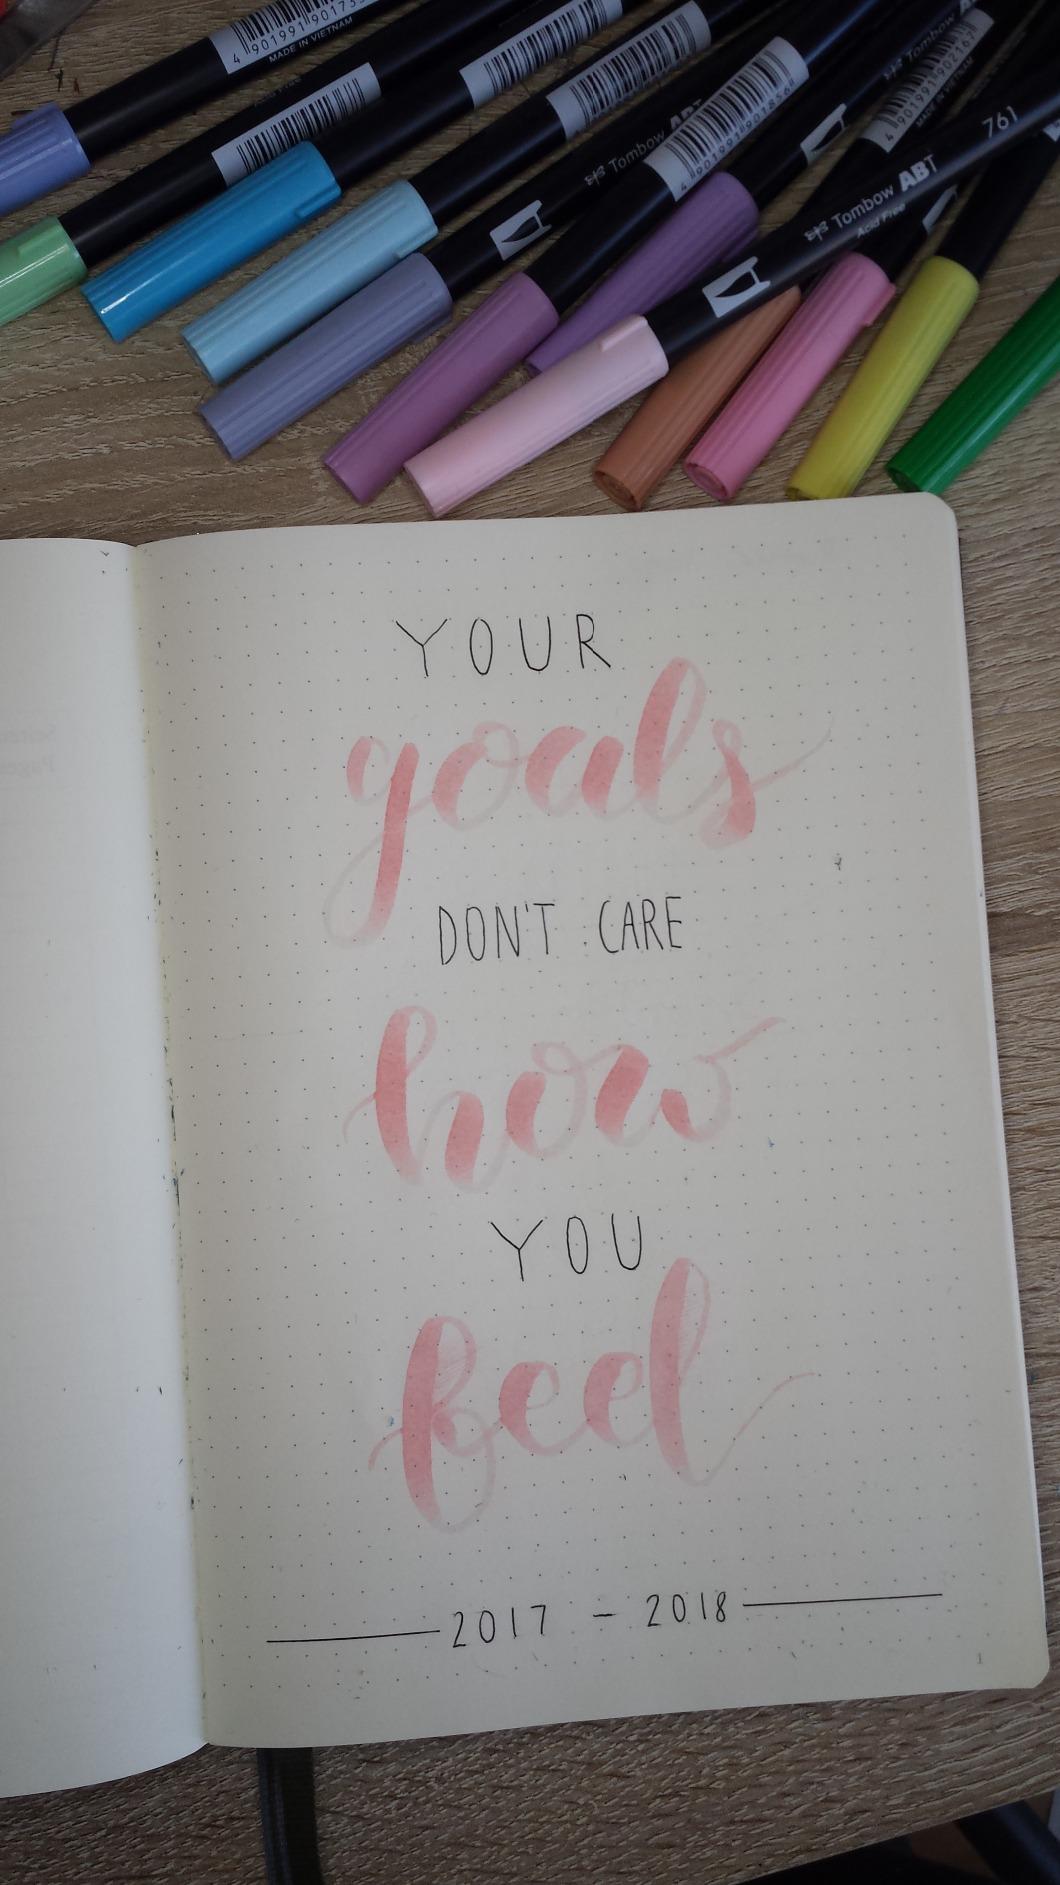 4 901991 901733
MADE IN VIETNAM
Tombow ABT
4 901991 901856
Tombow A
MADE IN VIETNAM
761
Tombow ABT
Acid Free
YOUR
goals
DON'T CARE
how
YOU
feel
2017 - 2018
1